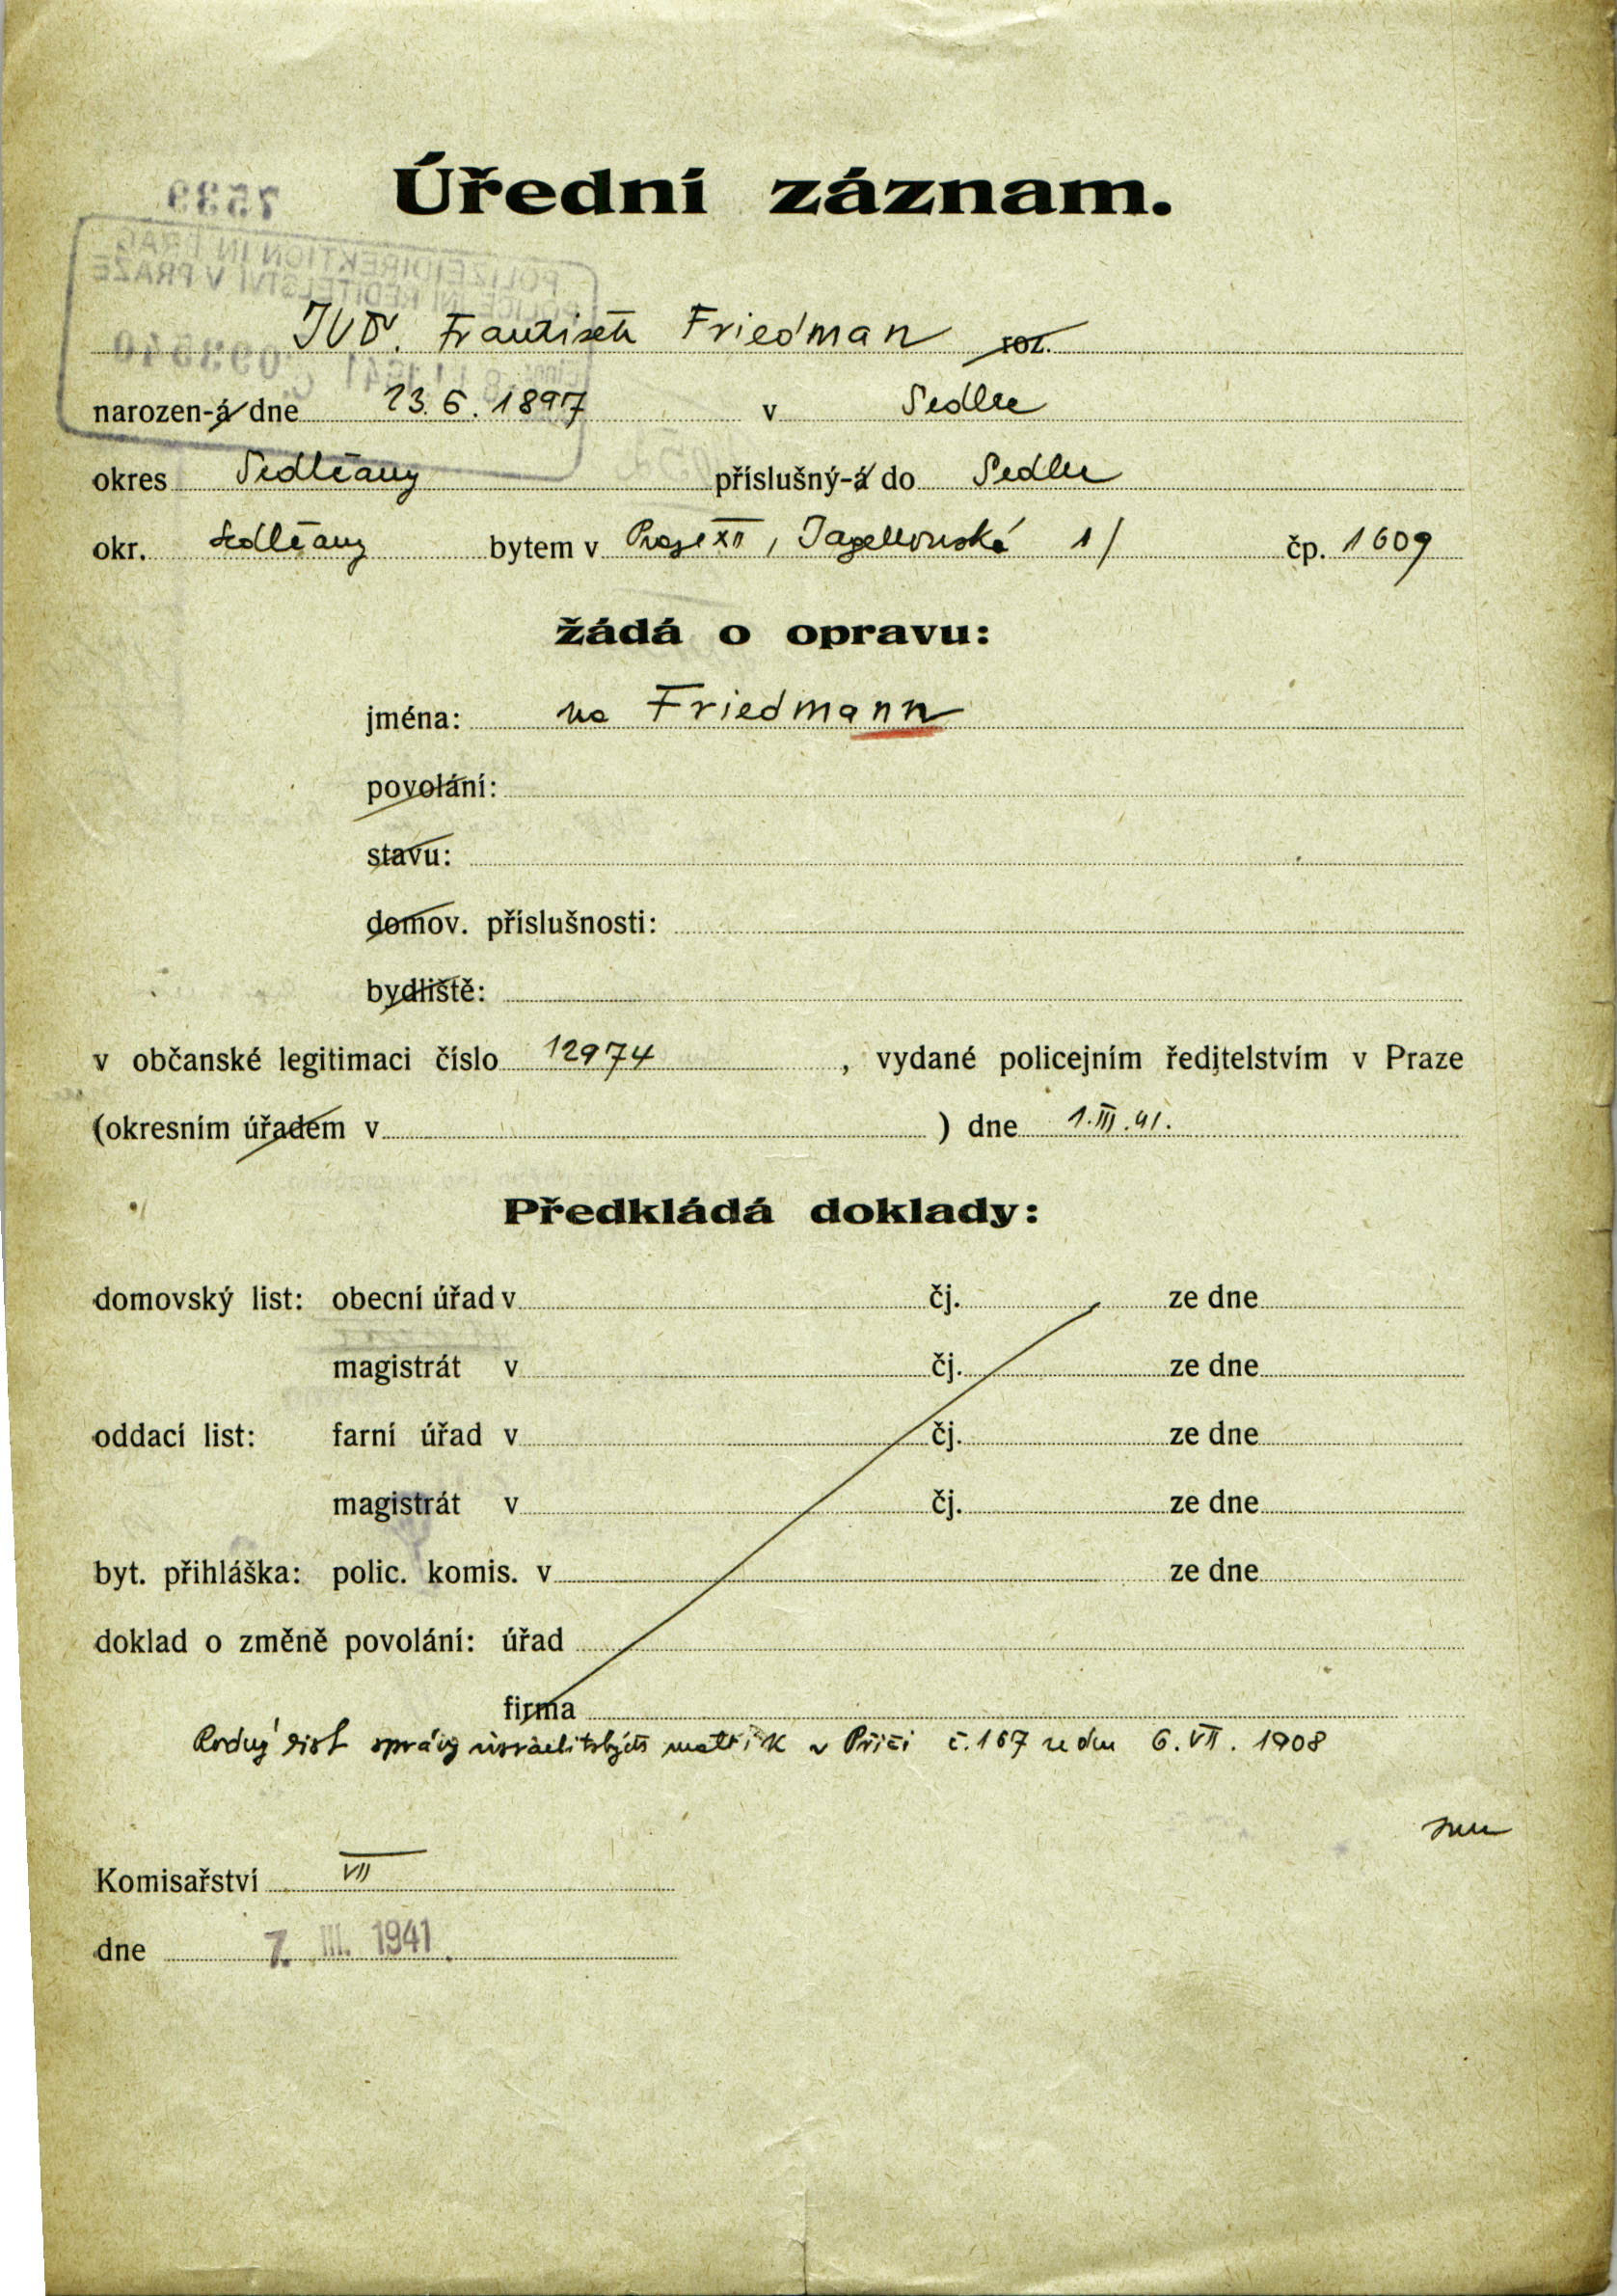 Úřední záznam.
7539
POLIZEIDIREKTION IN PRAG
POLICEJNÍ ŘEDITELSTVÍ V PRAZE
JUDr. František Friedman roz.
narozen-á dne 23. 6. 1897 v Sedlec
okres Sedlčany příslušný-á do Sedlec
okr. Sedlčany bytem v Praze XII, Jagellonská 1/ čp. 1609
žádá o opravu:
jména: na Friedmann
povolání:
stavu:
domov. příslušnosti:
bydliště:
v občanské legitimaci číslo 12974, vydané policejním ředitelstvím v Praze
(okresním úřadem v ) dne 1. III. 41.
Předkládá doklady:
domovský list: obecní úřad v čj. ze dne
magistrát v čj. ze dne
oddací list: farní úřad v čj. ze dne
magistrát v čj. ze dne
byt. přihláška: polic. komis. v ze dne
doklad o změně povolání: úřad
firma
Rodný list správy israelitských matrik v Příčí č. 167 ze dne 6. VII. 1908
Komisařství VII
dne 7. III. 1941.